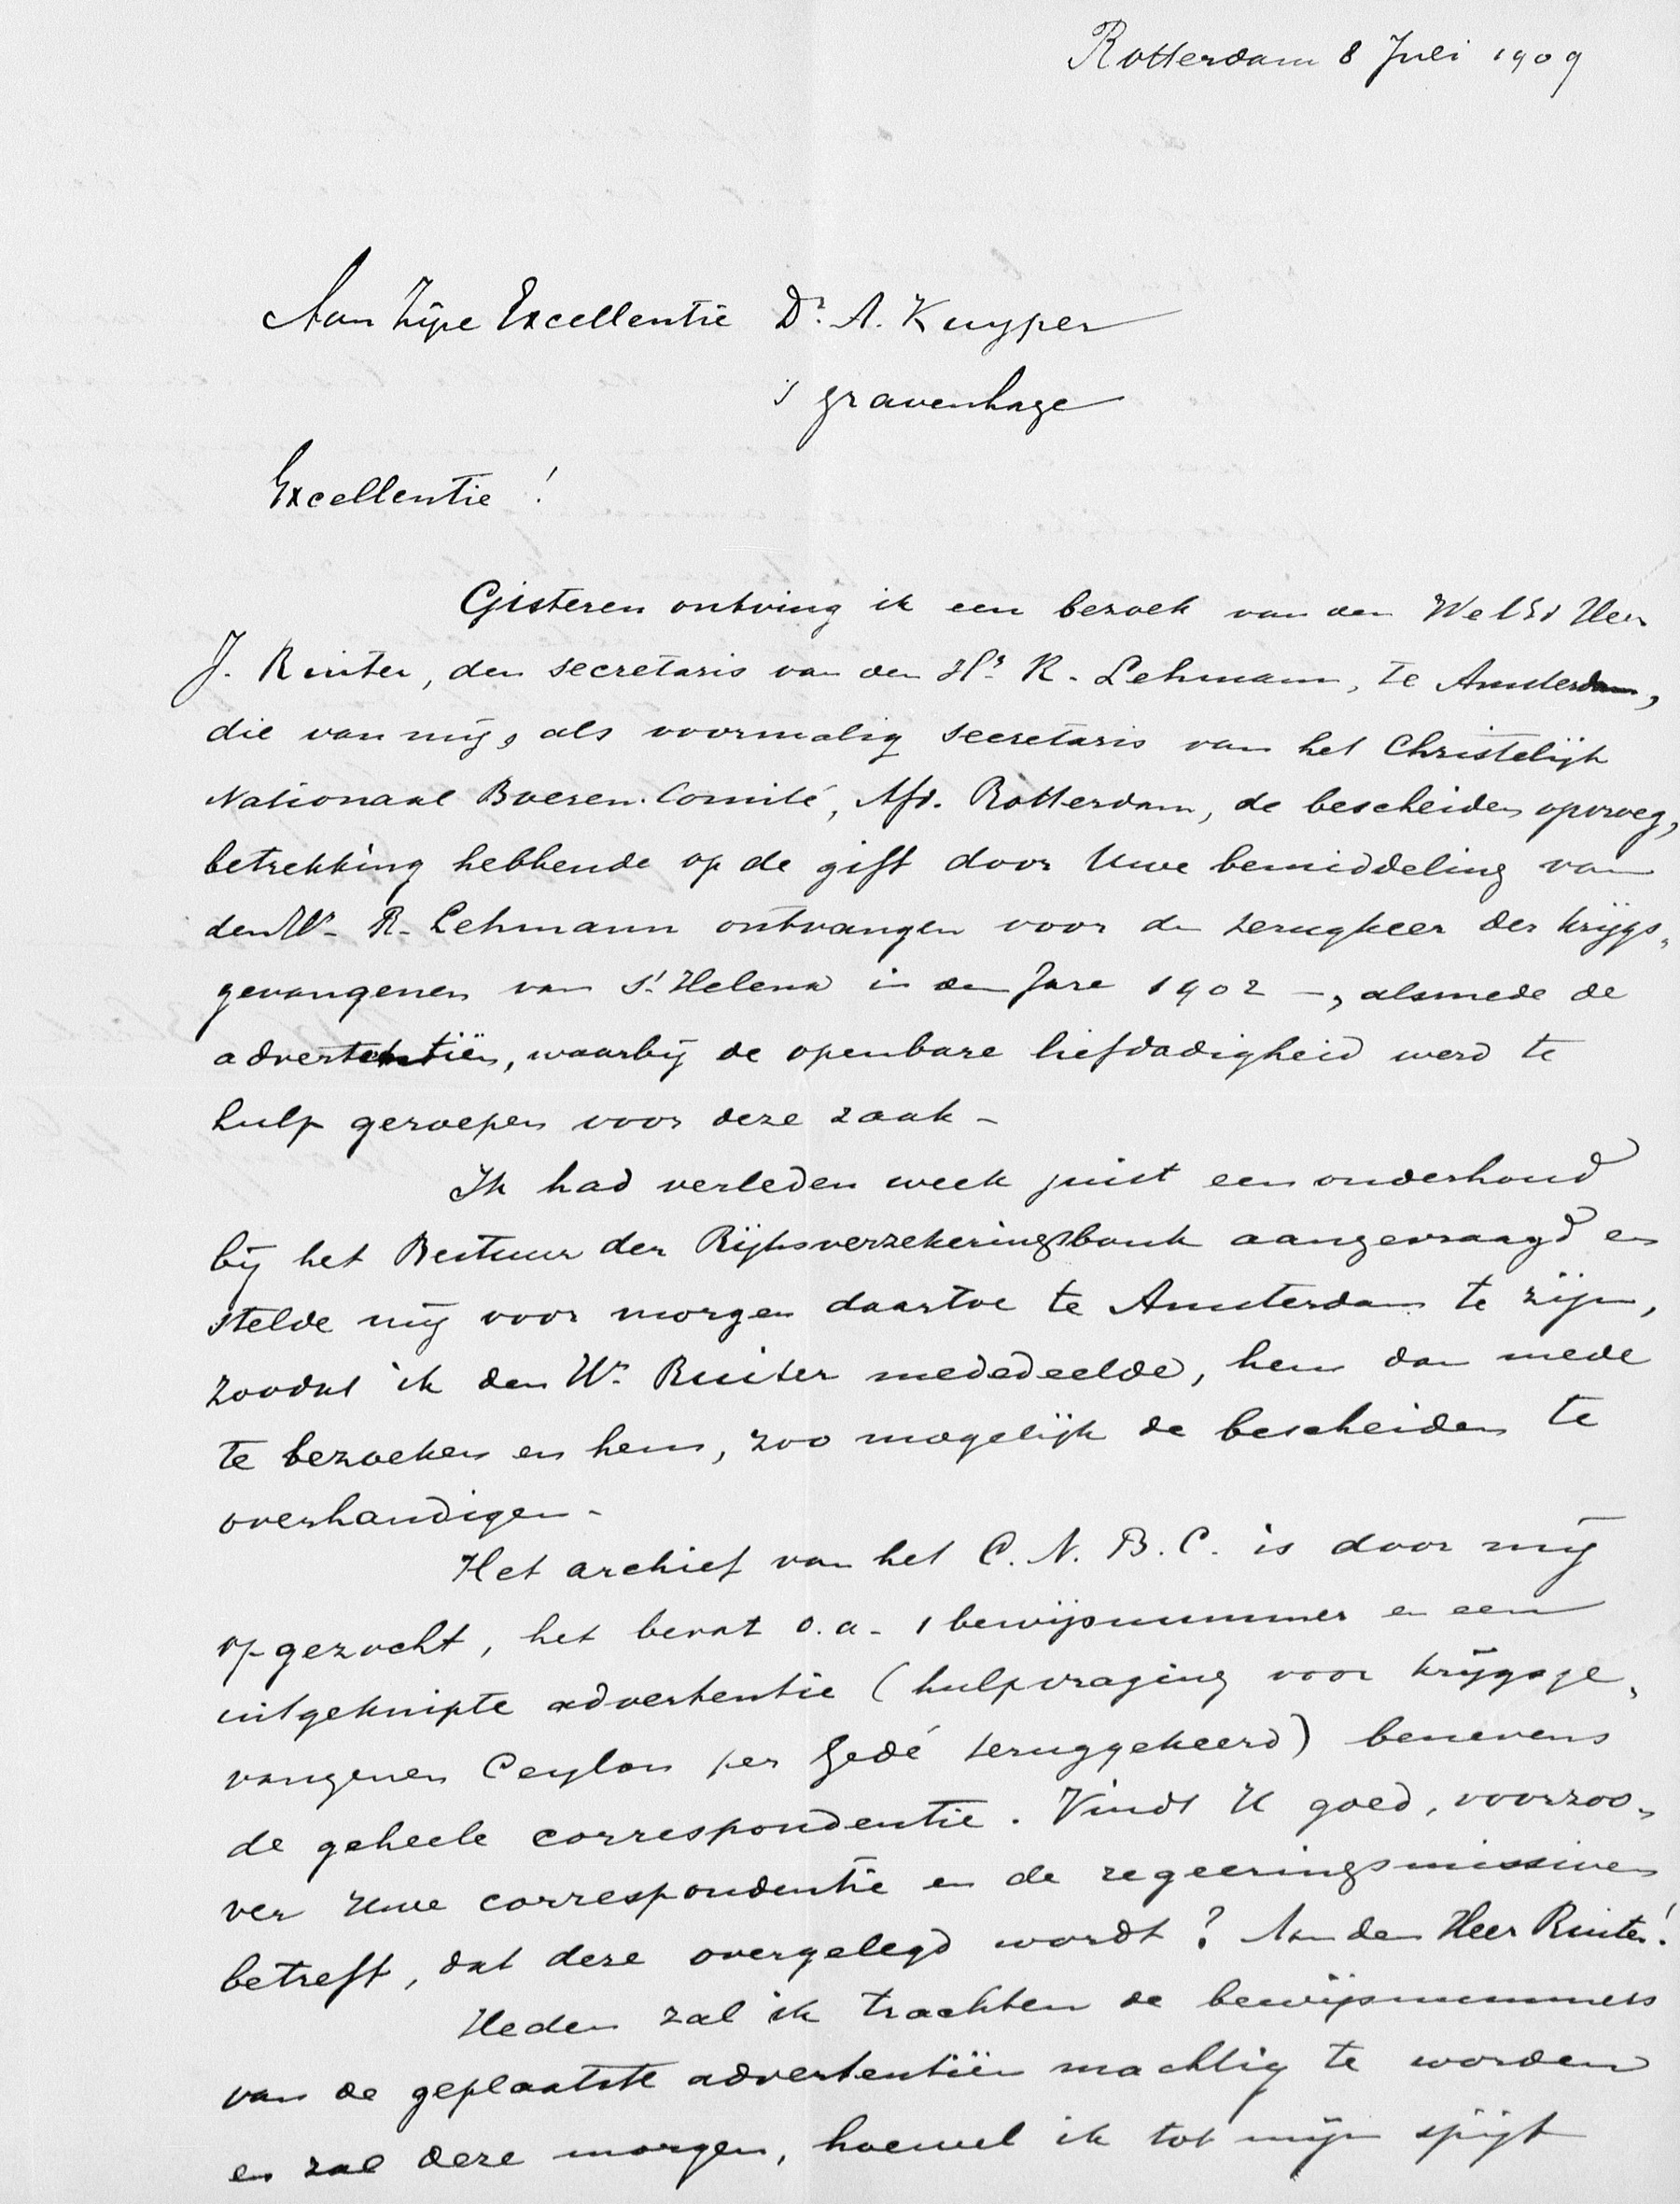 Rotterdam 8 Juli 1909
Aan Zijne Excellentie Dr. A. Kuyper
's Gravenhage
Excellentie!
Gisteren ontving ik een bezoek van den WelEd Heer
J. Ruiter, den secretaris van den Hr. R. Lehmann, te Amsterdam,
die van mij, als voormalig secretaris van het Christelijk
Nationaal Boeren-Comité, Afd. Rotterdam, de bescheiden opvroeg,
betrekking hebbende op de gift door Uwe bemiddeling van
den Hr. R. Lehmann ontvangen voor de terugkeer der krijgs-
gevangenen van St. Helena in den Jare 1902 -, alsmede de
advertentiën, waarbij de openbare liefdadigheid werd te
hulp geroepen voor deze zaak -
Ik had verleden week juist een onderhoud
bij het Bestuur der Rijksverzekeringsbank aangevraagd en
stelde mij voor morgen daartoe te Amsterdam te zijn,
zoodat ik den Hr. Ruiter mededeelde, hem dan mede
te bezoeken en hem, zoo mogelijk de bescheiden te
overhandigen -
Het archief van het C. N. B. C. is door mij
opgezocht, het bevat o.a. 1 bewijsnummer en een
uitgeknipte advertentie (hulpvraging voor krijgsge-
vangenen Ceylon per Gedé teruggekeerd) benevens
de geheele correspondentie. Vindt U goed, voorzoo-
ver Uwe correspondentie en de regeeringsmissiven
betreft, dat deze overgelegd wordt? Aan den Heer Ruiter!
Heden zal ik trachten de bewijsnummers
van de geplaatste advertentiën machtig te worden
en zal deze morgen, hoewel ik tot mijn spijt